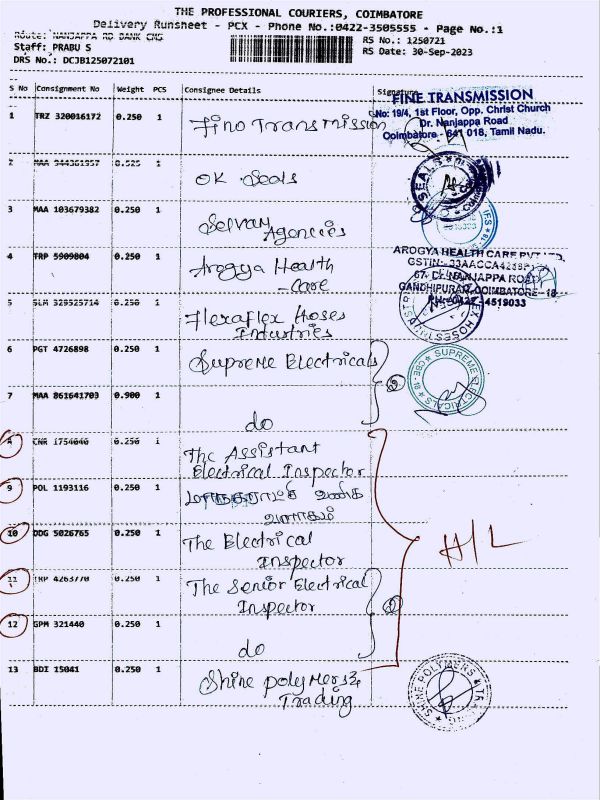 THE PROFESSIONAL COURIERS, COIMBATORE
Delivery Runsheet - PCX - Phone No.:0422-3505555 - Page No.:1
Route: NANJAPPA RD BANK CNG
RS No.: 1250721
Staff: PRABU S
RS Date: 30-Sep-2023
DRS No.: DCJB125072101
S No Consignment No Weight PCS Consignee Details Signature
1 TRZ 320016172 0.250 1 Fino Transmission
FINE TRANSMISSION
No: 19/4, 1st Floor, Opp. Christ Church
Dr. Nanjappa Road
Coimbatore - 641 018, Tamil Nadu.
2 MAA 944361357 0.525 1 OK Seals
SEALS
3 MAA 103679382 0.250 1 Selvam
Agencies
4 TRP 5909804 0.250 1 Arogya Health
care
AROGYA HEALTH CARE PVT LTD.
67- NANJAPPA ROAD
GANDHIPURAM, COIMBATORE - 18
PH: 0422 - 4519033
5 SLM 329525714 0.250 1 Flexaflex Hoses
Industries
HOSES
6 PGT 4726898 0.250 1 Supreme Electricals
SUPREME ELECTRICALS ★ CBE-18 ★
7 MAA 861641703 0.900 1 do
8 CNR 1754040 0.250 1 The Assistant
Electrical Inspector
9 POL 1193116 0.250 1 வணிக
வளாகம்
10 DDG 5026765 0.250 1 The Electrical
Inspector
H/L
11 TRP 4263770 0.250 1 The Senior Electrical
Inspector
12 GPM 321440 0.250 1 do
13 BDI 15041 0.250 1 Shine polymers &
Trading
SHINE POLYMERS & TRADING